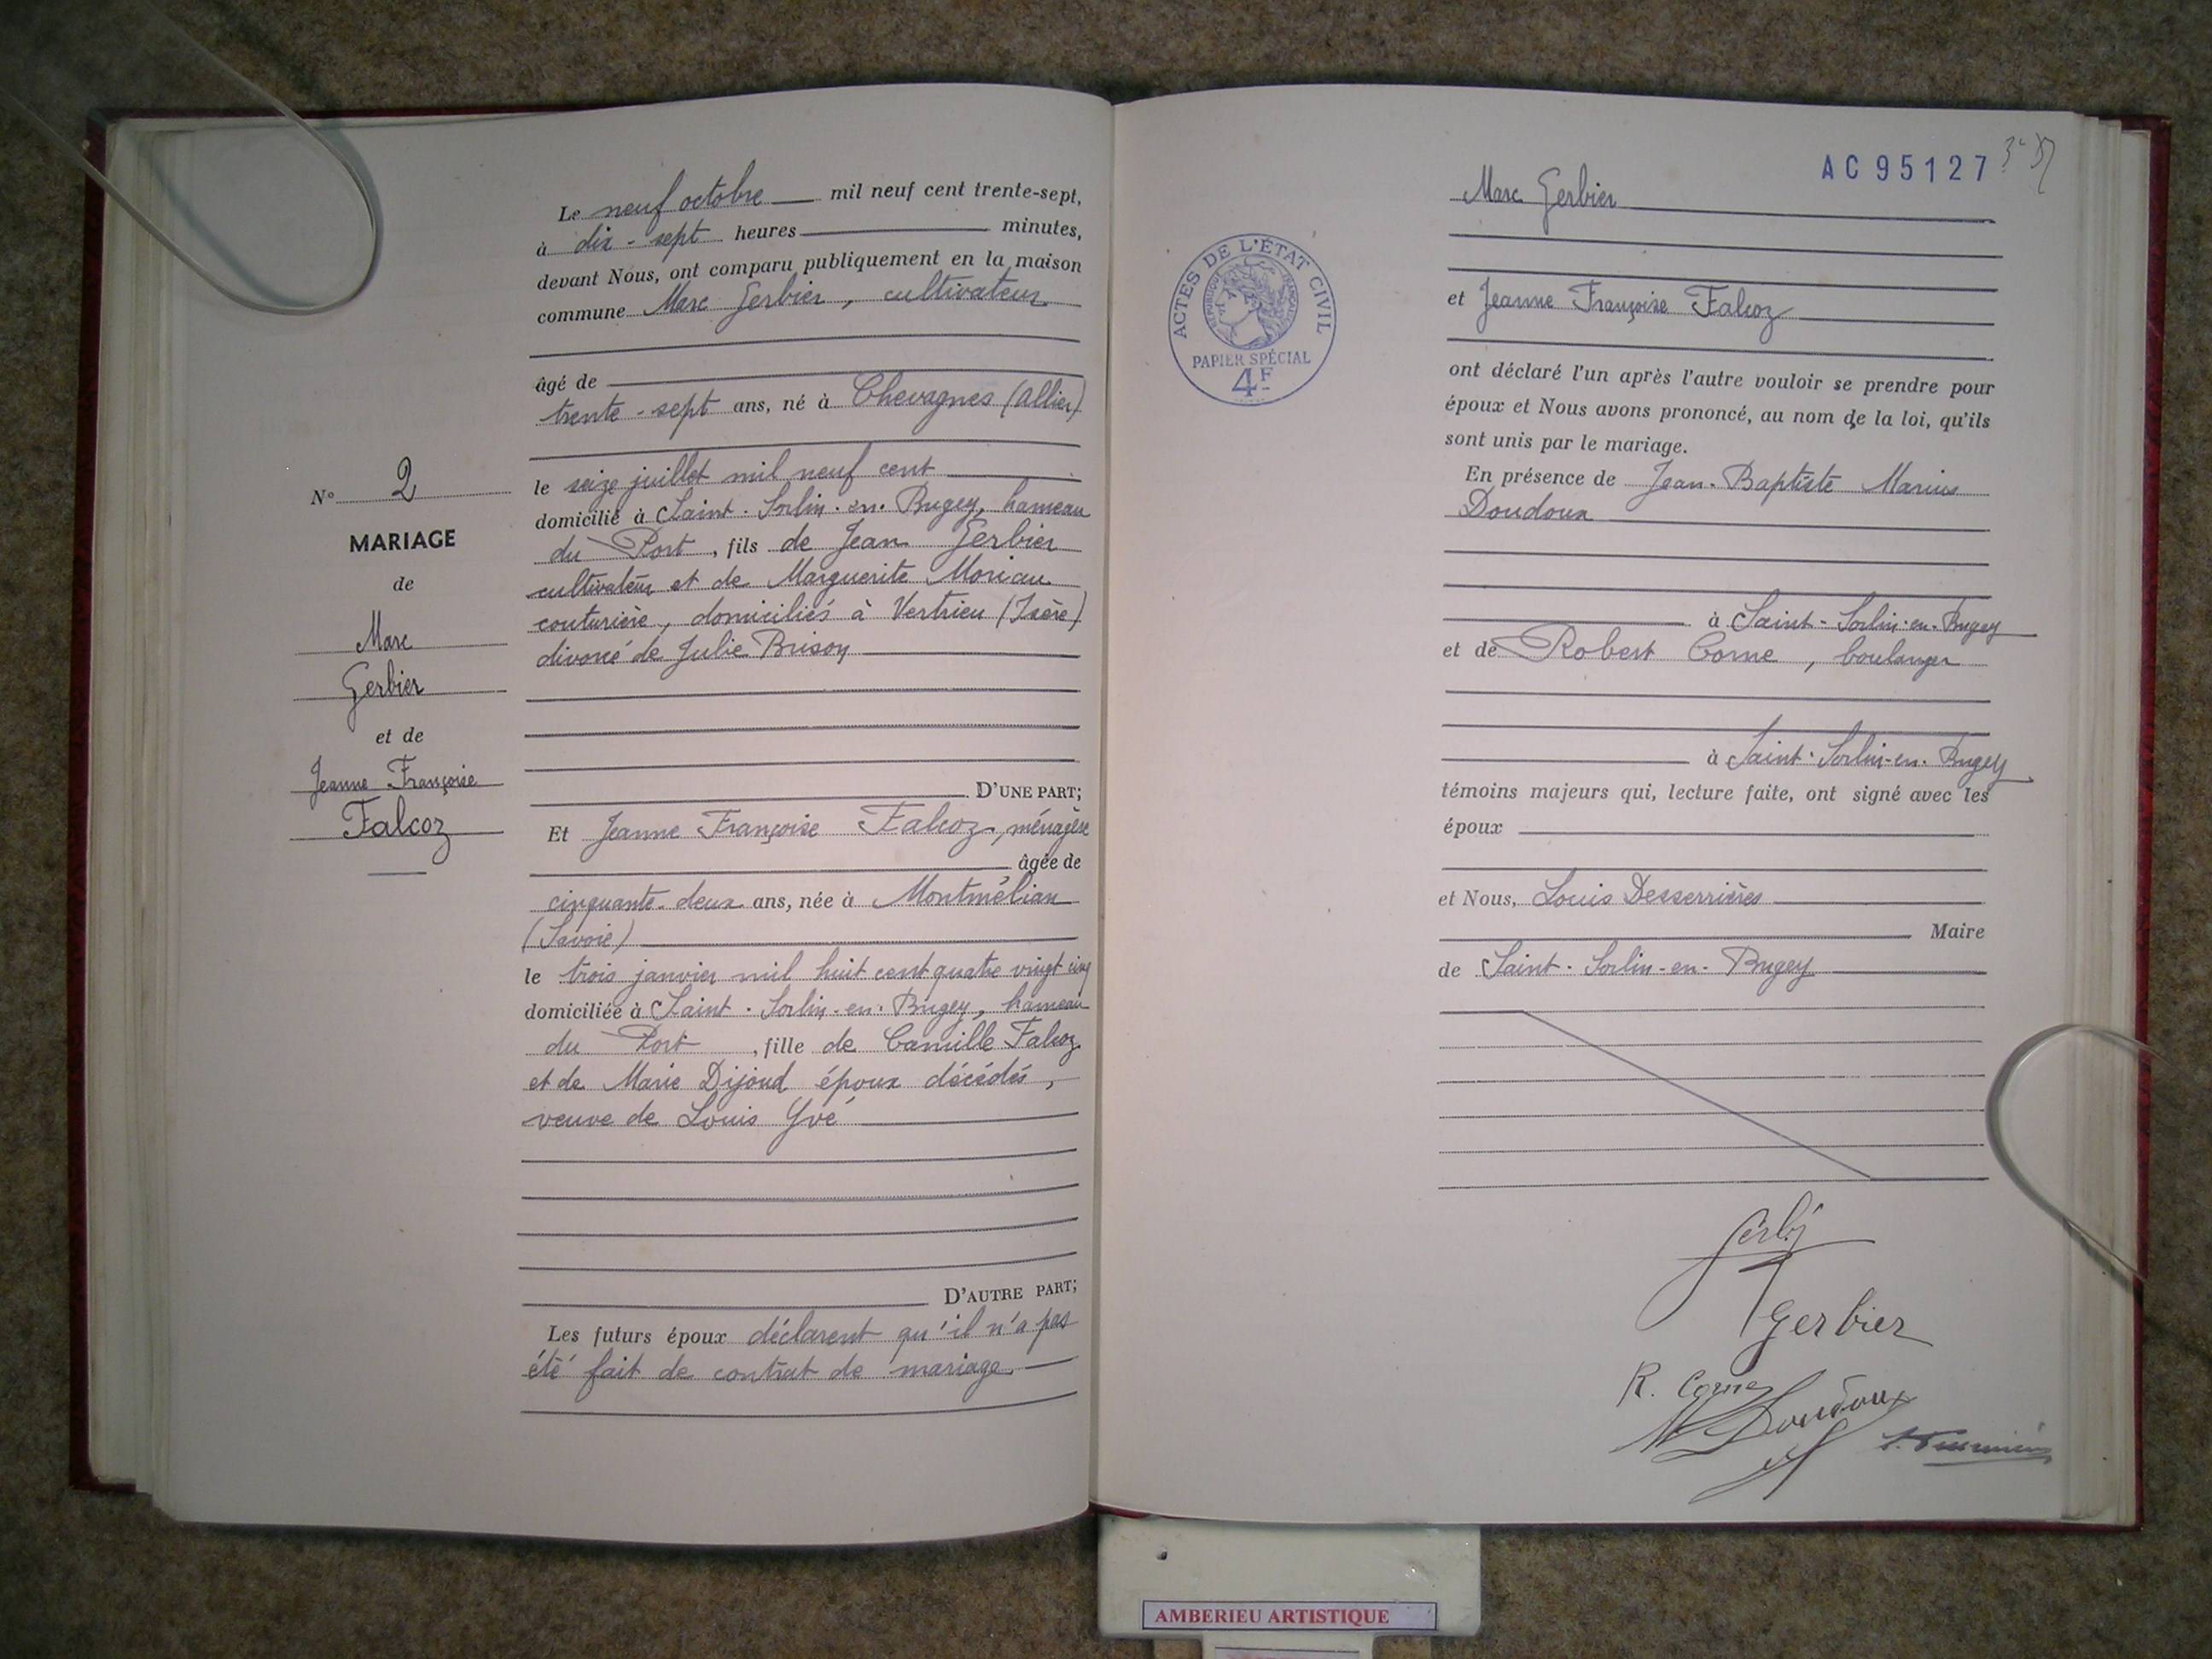 Le neuf octobre mil neuf cent trente-sept,
à dix-sept heures minutes,
devant Nous, ont comparu publiquement en la maison
commune Marc Gerbier, cultivateur
âgé de
trente-sept ans, né à Chevagnes (Allier)
le seize juillet mil neuf cent
domicilié à Saint-Sorlin-en-Bugey, hameau
du Port, fils de Jean Gerbier
cultivateur et de Marguerite Moreau
couturière, domiciliés à Vertrieu (Isère)
divorcé de Julie Brison
D'UNE PART;
Et Jeanne Françoise Falcoz, ménagère
âgée de
cinquante-deux ans, née à Montmélian
(Savoie)
le trois janvier mil huit cent quatre vingt cinq
domiciliée à Saint-Sorlin-en-Bugey, hameau
du Port, fille de Camille Falcoz
et de Marie Dijoud époux décédés,
veuve de Louis Yvé
D'AUTRE PART;
Les futurs époux déclarent qu'il n'a pas
été fait de contrat de mariage
N° 2
MARIAGE
de
Marc
Gerbier
et de
Jeanne Françoise
Falcoz
AC 95127
Marc Gerbier
et Jeanne Françoise Falcoz
ont déclaré l'un après l'autre vouloir se prendre pour
époux et Nous avons prononcé, au nom de la loi, qu'ils
sont unis par le mariage.
En présence de Jean-Baptiste Marius
Doudoux
à Saint-Sorlin-en-Bugey
et de Robert Corne, boulanger
à Saint-Sorlin-en-Bugey
témoins majeurs qui, lecture faite, ont signé avec les
époux
et Nous, Louis Desserrières
Maire
de Saint-Sorlin-en-Bugey
Gerbier
R. Corne
M Doudoux
ACTES DE L'ÉTAT CIVIL
RÉPUBLIQUE FRANÇAISE
PAPIER SPÉCIAL
4F
AMBERIEU ARTISTIQUE